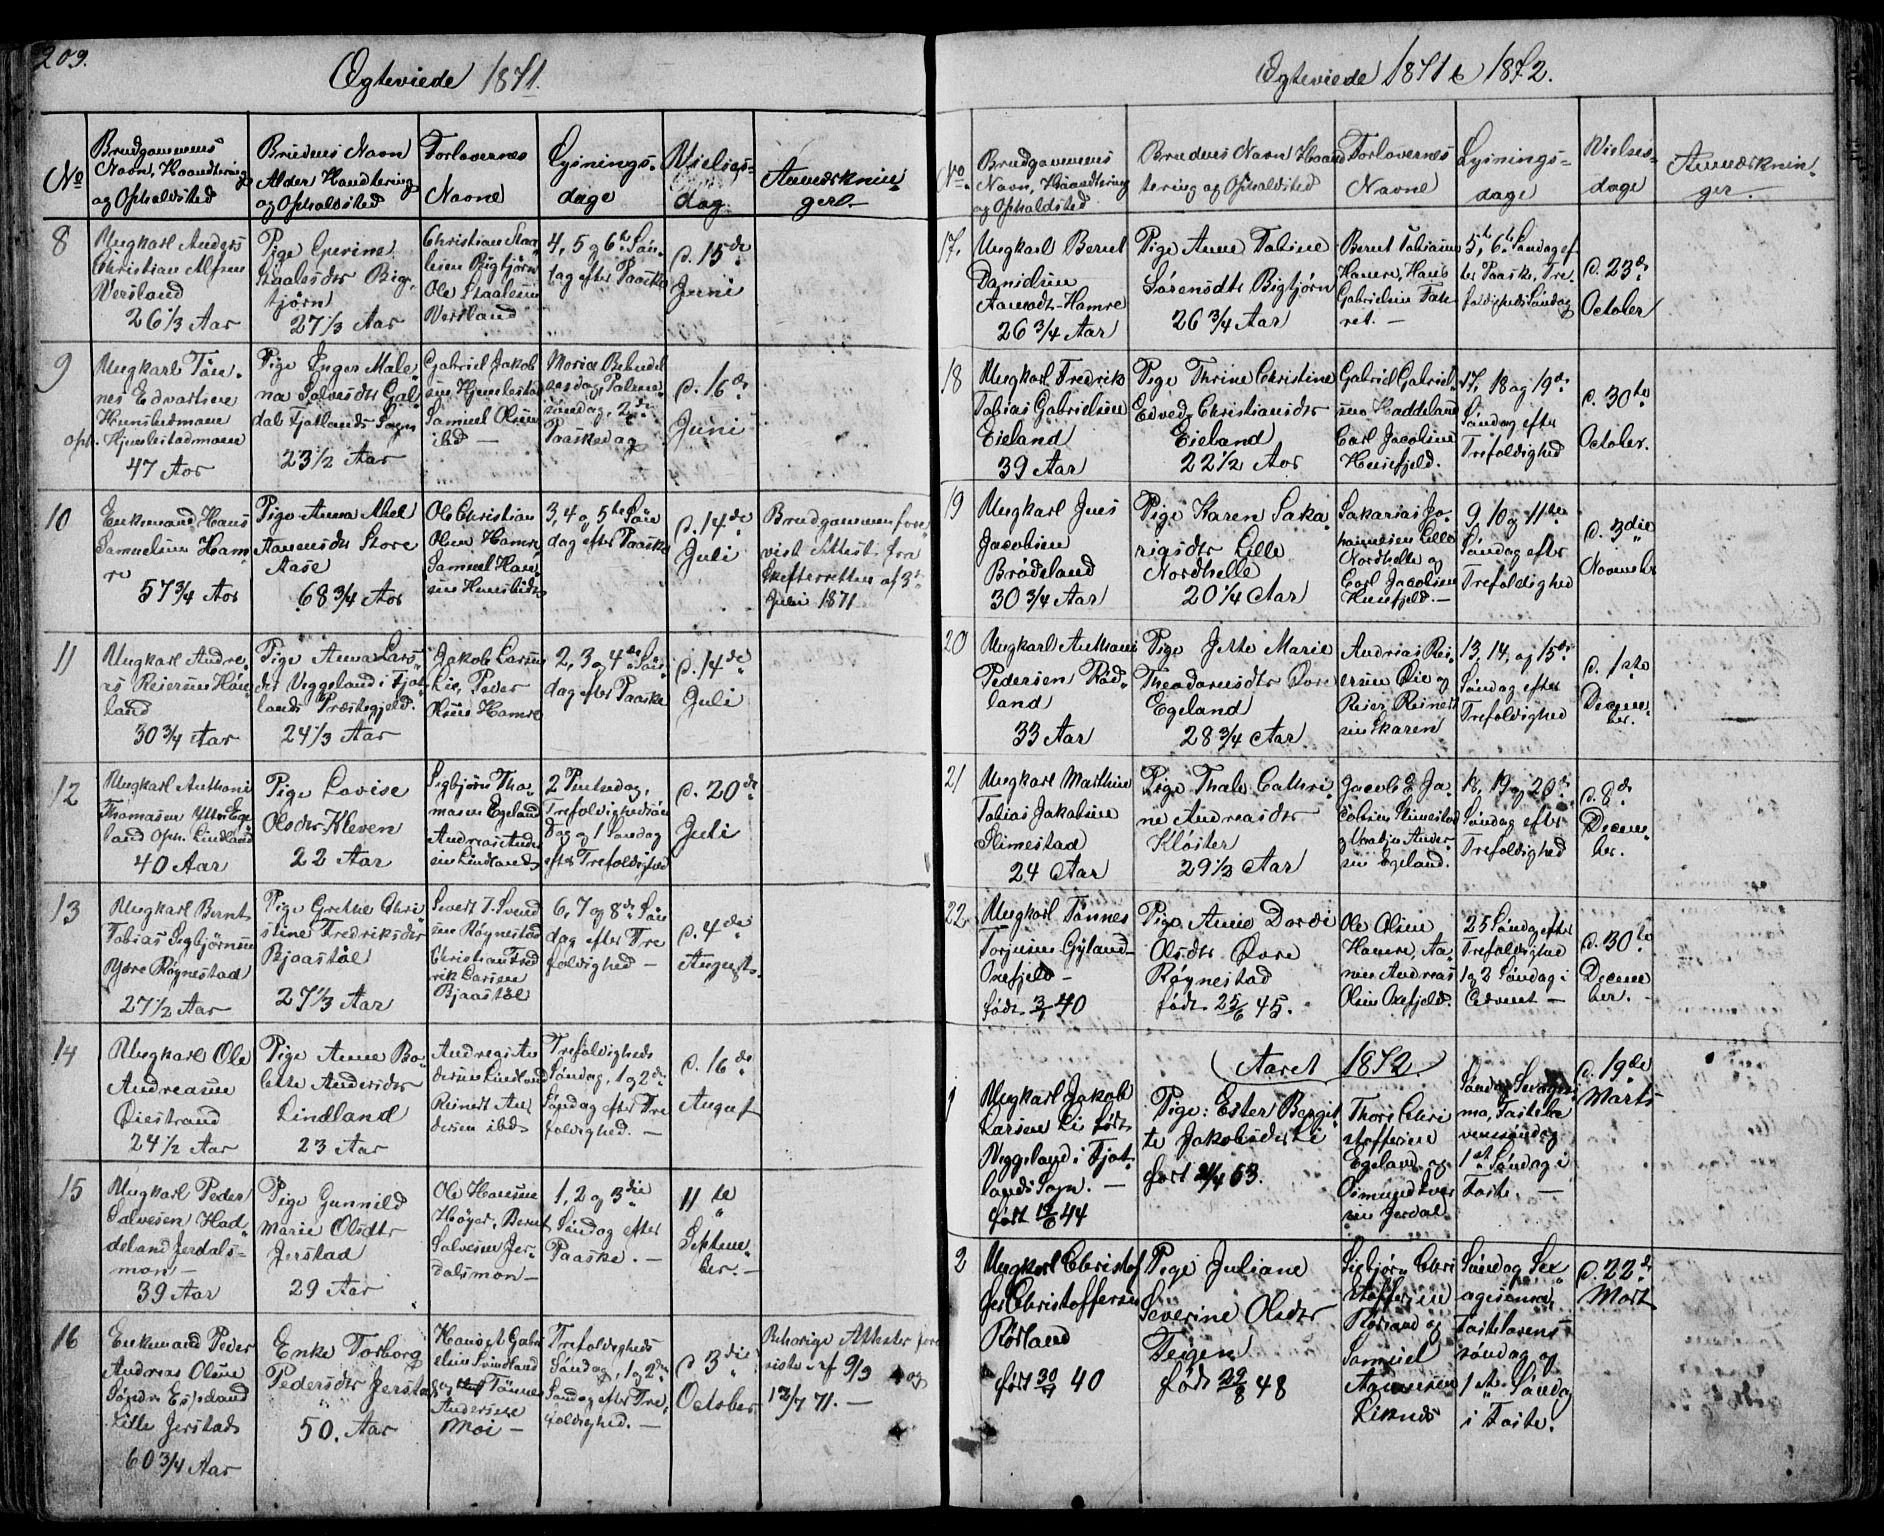 209.
Ægteviede 1871.
No
Brudgommens Navn, Haandtering og Opholdsted
Brudens Navn Alder Handtering og Opholdsted
Forlovernes Navne
Lysnings-dage
Vielses-dag
Anmærkninger
8
Ungkarl Anders
Christian Alfsen
Versland
26 1/3 Aar
Pige Gurine
Staalesdtr Big-
tjørn
27 1/3 Aar
Christian Staa
lesen Bigtjørn
Ole Staalesen
Versland
4, 5 og 6te Søn-
dag efter Paaske
d. 15de
Juni
9
Ungkarl Tøn-
nes Edvartsen
Hunsbedmoen
Oph. Hjemlestadmoen
47 Aar
Pige Inger Male
na Salvesdtr Gal
dal Fjotlands Sogn
23 1/2 Aar
Gabriel Jakob
sen Hjemlestad
Samuel Olsen
ibd —
Mariæ Bebudel
sesdag, Palme
søndag, 2den
Paaskedag
d. 16de
Juni
10
Enkemand Hans
Samuelsen Ham
re
57 3/4 Aar
Pige Anna Abel
Aanensdtr Store
Aase
68 3/4 Aar
Ole Christian
Olsen Hamre
Samuel Han
sen Hunsbedt
3, 4 og 5te Søn
dag efter Paaske
d. 14de
Juli
Brudgommen fore
vist Attest fra
Skifteretten af 3de
Juli 1871
11
Ungkarl Andre-
as Reiersen Høi
land
30 3/4 Aar
Pige Anna Lars-
dtr Veggeland i Fjot
lands Præstegjeld.
24 1/3 Aar
Jakob Larsen
Lie, Peder
Olsen Hamre
2, 3 og 4de Søn
dag efter Paaske
d. 14de
Juli
12
Ungkarl Anthoni
Thomasen Ytre Ege
land Oph. Lindland
40 Aar
Pige Lovise
Olsdtr Kleven
22 Aar
Sigbjørn Tho-
masen Egeland
Andreas Ander
sen Lindland
2 Pintsedag,
Trefoldighedsøn
dag og 1 Søndag
efter Trefoldighed
d. 20de
Juli
13
Ungkarl Bernt
Tobias Sigbjørnsen
Øvre Røynestad
27 1/2 Aar
Pige Grethe Chri
stine Fredriksdtr
Bjaastøl
27 1/3 Aar
Sivert T. Svend
sen Røynestad
Christian Fred
rik Larsen
Bjaastøl
6, 7 og 8de Søn
dag efter Tre
foldighed —
d. 4de
August
14
Ungkarl Ole
Andreasen
Øiestrand
24 1/2 Aar
Pige Anne Bo
lette Andersdtr
Lindland
23 Aar
Andreas An
dersen Lindland
Reinert An
dersen ibd
Trefoldigheds
Søndag, 1 og 2den
Søndag efter Tre
foldighed. —
d. 16de
August
15
Ungkarl Peder
Salvesen Had
deland Jerdals-
mon —
39 Aar
Pige Gunnild
Marie Olsdtr
Jerstad
29 Aar
Ole Hansen
Høyer, Bernt
Salvesen Jer-
dalsmon —
1, 2 og 3die
Søndag efter
Paaske. —
11te
Septem-
ber. —
16
Enkemand Peder
Andreas Olsen
Søndre Eigeland
Lille Jerstad
60 3/4 Aar
Enke Torborg
Pedersdtr Jerstad
50. Aar
Hans A Gabri
elsen Svindland
og Tønnes
Andersen
Moi —
Trefoldigheds
Søndag, 1 og 2den
Søndag efter Tre
foldighed. —
d. 3die
October
Behørige Attester fore
viste af 9/9 og
12/7 71. —
Ægteviede 1871 & 1872.
No
Brudgommens Navn, Haandtering og Opholdsted
Brudens Navn Haand tering og Opholdsted
Forlovernes Navne
Lysnings-dage
Vielses-dage
Anmærkninger.
17.
Ungkarl Bernt
Danielsen
Aamodt-Hamre
26 3/4 Aar
Pige Anne Tobine
Sørensdtr Bigtjørn
26 3/4 Aar
Bernt Tobiasen
Hamre, Hans
Gabrielsen
5te, 6te Søndag ef
ter Paaske, Tre
foldigheds Søndag
d. 23de
October
18
Ungkarl Fredrik
Tobias Gabrielsen
Eieland
39 Aar
Pige Thrine Christine
Edved. Christiansdtr
Eieland
22 1/2 Aar
Gabriel Gabriel
sen Haddeland
Carl Jacobsen
Hunsfjeld.
17, 18 og 19de
Søndag efter
Trefoldighed
d. 30te
October.
19
Ungkarl Jens
Jacobsen
Brådeland
30 3/4 Aar
Pige Karen Saka
riasdtr Lille
Nordhelle
20 1/4 Aar
Sakarias Jo-
hannesen Lille
Nordhelle og
Carl Jacobsen
Hunsfjeld. —
9 10 og 11te
Søndag efter
Trefoldighed
d. 3die
Novembr
20
Ungkarl Anthoni
Pedersen Rød-
land
33 Aar
Pige Jette Marie
Theodorusdtr Øvre
Egeland
28 3/4 Aar
Andrias Rei-
ersen Øie og
Reier Reinert
sen Skaren
13, 14, og 15de
Søndag efter
Trefoldighed
d. 1ste
Decem-
ber.
21
Ungkarl Mathias
Tobias Jakobsen
Slimestad
24 Aar
Pige Thale Cathri
ne Andreasdtr
Kloster
29 1/3 Aar
Jacob E. Ja-
cobsen Slimestad
og Ander-
sen Egeland.
18, 19 og 20de
Søndag efter
Trefoldighed
d. 8de
Decem-
ber.
22.
Ungkarl Tønnes
Torjusen Gyland
Oxefjeld —
født 3/1 40
Pige Anne Dordi
Olsdtr Øvre
Røynestad
født 25/6 45.
Ole Olsen
Hamre, Aa-
nen Andreas
Olsen Oxefjeld.
25 Søndag efter
Trefoldighed
1 og 2 Søndag i
Advent —
d. 30te
Decem
ber. —
Aaret 1872
1
Ungkarl Jakob
Larsen Li født
Veggeland i Fjot-
lands Sogn. —
født 19/6 44
Pige: Ester Bergit
te Jakobsdtr Li
født 21/4 53.
Thore Chri
stoffersen
Egeland og
Osmund Iver
sen Jerdal
Søndag Septuagesi
ma, Fastela
venssøndag
1ste Søndag i
Faste. —
d. 19de
Marts
2
Ungkarl Christof
fer Christoffersen
Rørland
født 30/9 40
Pige Juliane
Severine Olsdtr
Teigen
født 29/8 48
Sigbjørn Chri
stoffersen
Rørland og
Samuel
Aanensen
Liknes
Søndag Sex
agesima,
Fastelavens-
søndag og
1ste Søndag
i Faste.
d. 22de
Mart